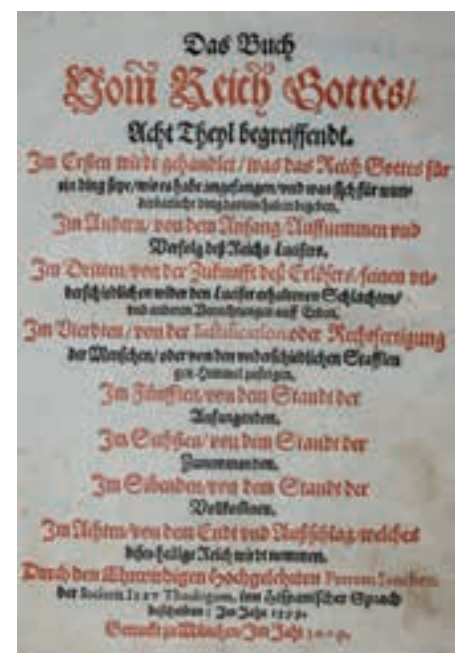 Das Buch
Vom̃ Reich Gottes/
Acht Theyl begreiffendt.
Im Ersten wirdt gehandlet/was das Reich Gottes für
ein ding seye/wie es habe angefangen/vnd was sich für wun-
derbarliche ding darinn haben begeben.
Im Andern/von dem Anfang/Auffkummen vnd
Verfolg deß Reichs Lucifers.
Im Dritten/von der Zukunfft deß Erlösers/seinen vn-
derschidlichen wider den Lucifer erhaltenen Schlachten/
vnd anderen Verrichtungen auff Erden.
Im Vierdten/von der Iustification oder Rechtfertigung
der Menschen/oder von den vnderschidlichen Stafflen
gen Himmel
Im Fünfften/von dem Standt der
Anfangenden.
Im Sechsten/von dem Standt der
Zunemmenden.
Im Sibenden/von dem Standt der
Volkomnen.
Im Achten/von dem Endt vnd Außschlag/welches
dises heilige Reich wirdt nemmen.
Durch den Ehrwürdigen Hochgelehrten
der Societet Iesv Theologum, inn Hispanischer Sprach
beschriben: Im Jahr
Getruckt zu München/Im Jahr